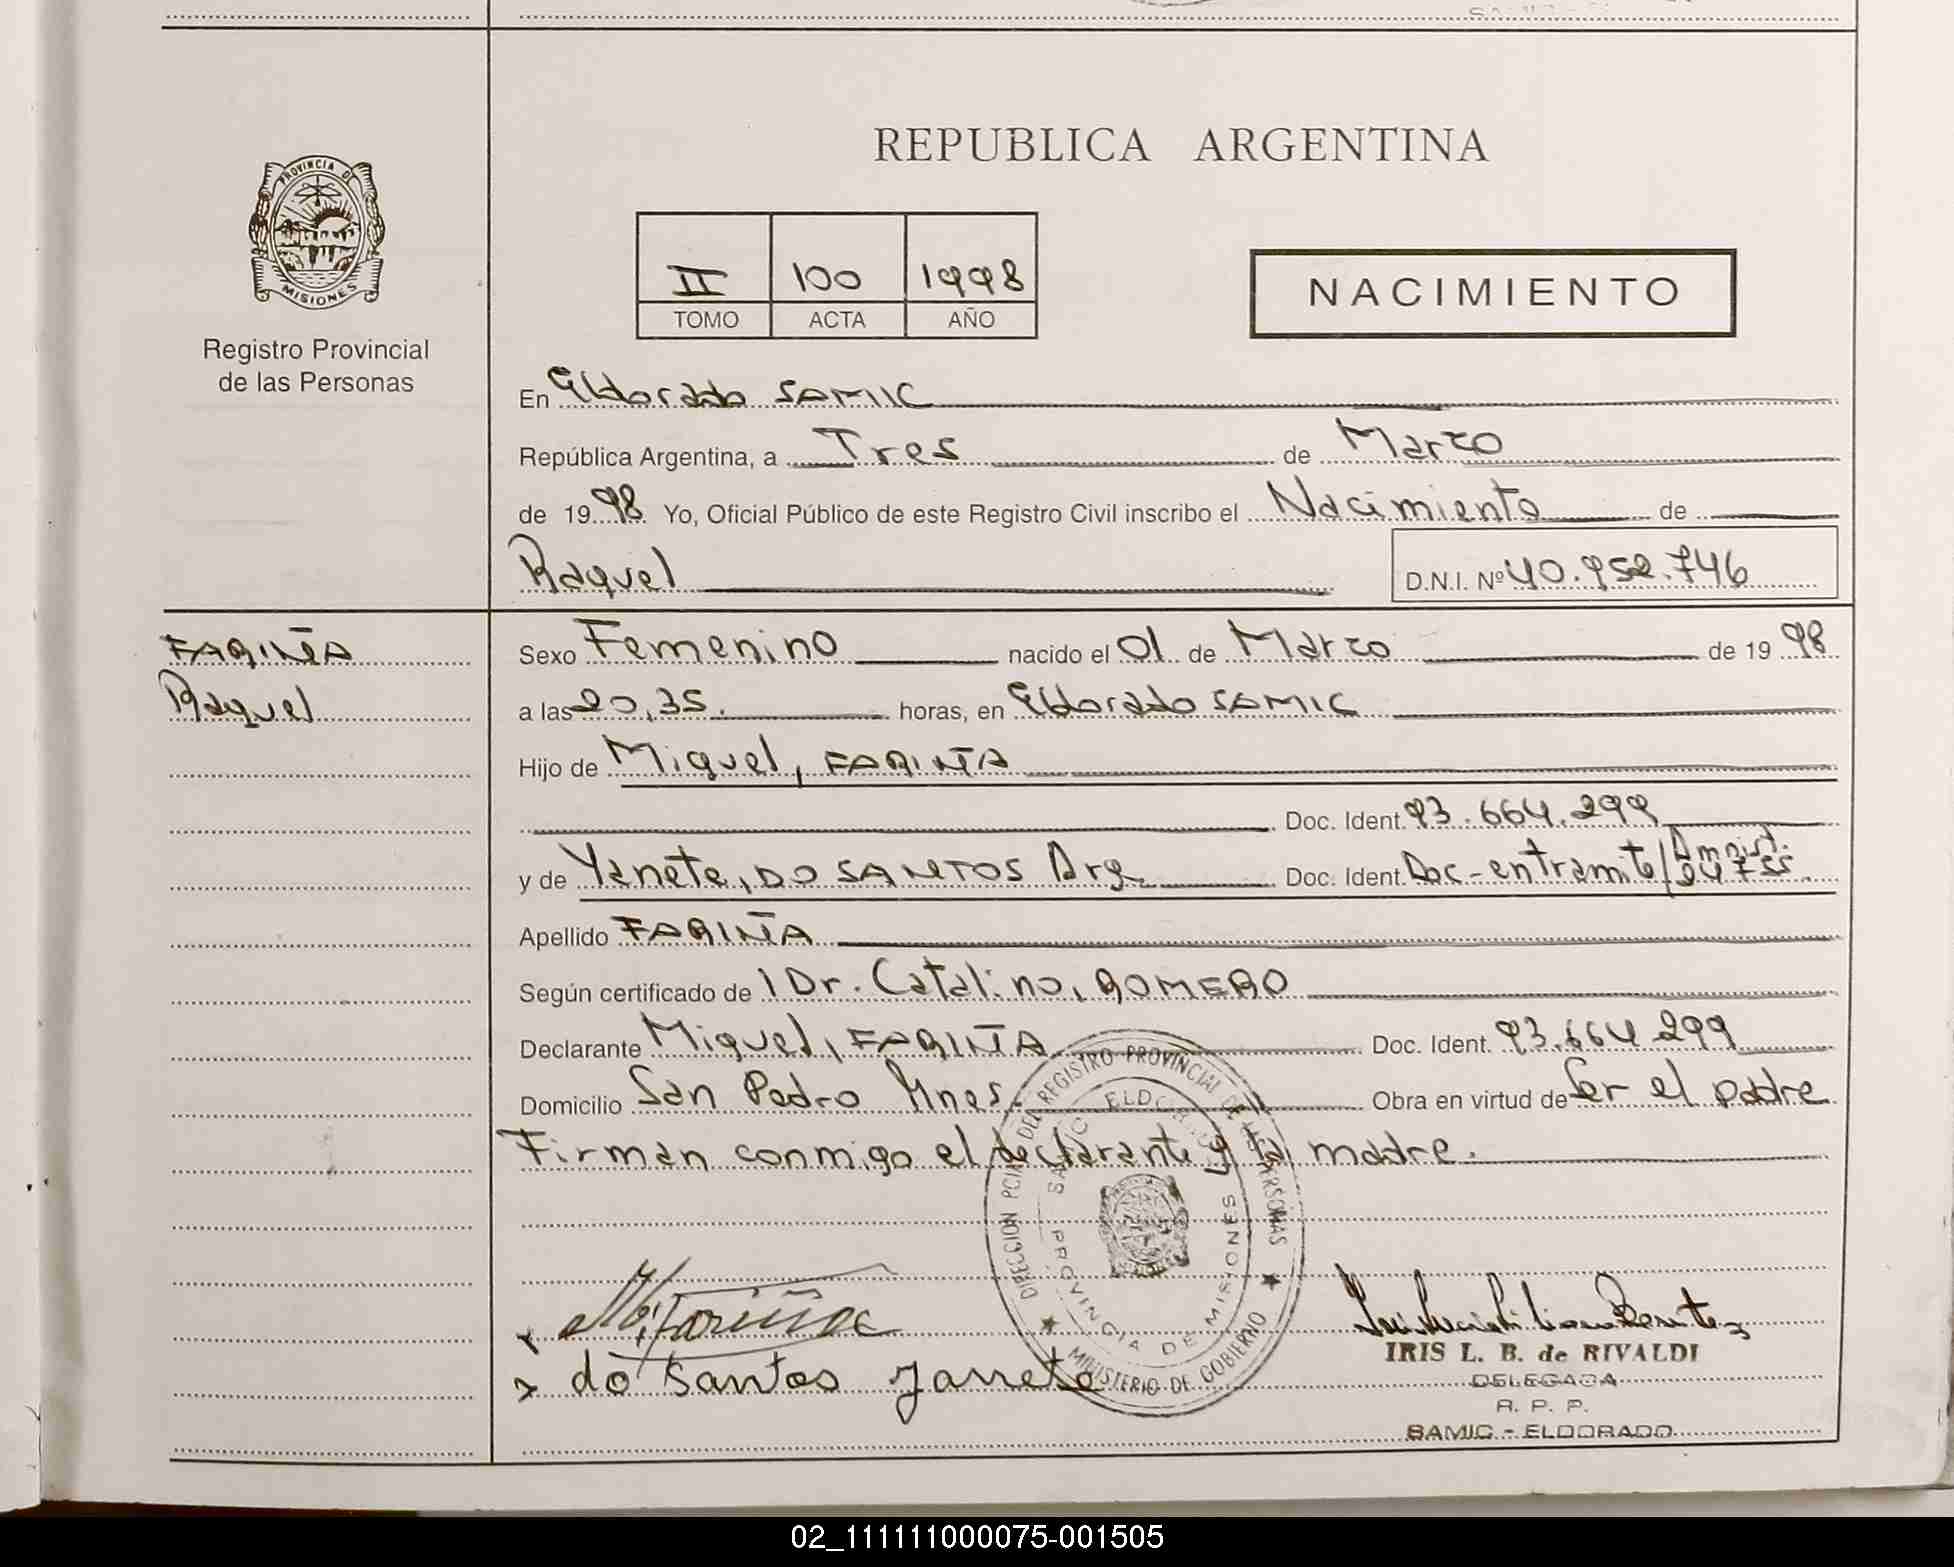 PROVINCIA DE
MISIONES
Registro Provincial
de las Personas
REPUBLICA ARGENTINA
II 100 1998
TOMO ACTA AÑO
NACIMIENTO
En Eldorado SAMIC
República Argentina, a Tres de Marzo
de 1998 Yo, Oficial Público de este Registro Civil inscribo el Nacimiento de
Raquel D.N.I. Nº 40.952.746
FARIÑA
Raquel
Sexo Femenino nacido el 01 de Marzo de 1998
a las 20,35. horas, en Eldorado SAMIC
Hijo de Miguel, FARIÑA
Doc. Ident. 93.664.299
y de Yanete, DO SANTOS Arg. Doc. Ident. Doc-entramite/
Apellido FARIÑA
Según certificado de l Dr. Catalino, ROMERO
Declarante Miguel, FARIÑA Doc. Ident. 93.664.299
Domicilio San Pedro Mnes. Obra en virtud de Ser el padre
Firman conmigo el declarante y la madre.
DIRECCION PCIA DEL REGISTRO PROVINCIAL DE LAS PERSONAS
SAMIC ELDORADO
PROVINCIA DE MISIONES
MINISTERIO DE GOBIERNO
do Santos Janete
IRIS L. B. de RIVALDI
DELEGADA
R. P. P.
SAMIC - ELDORADO
02_111111000075-001505